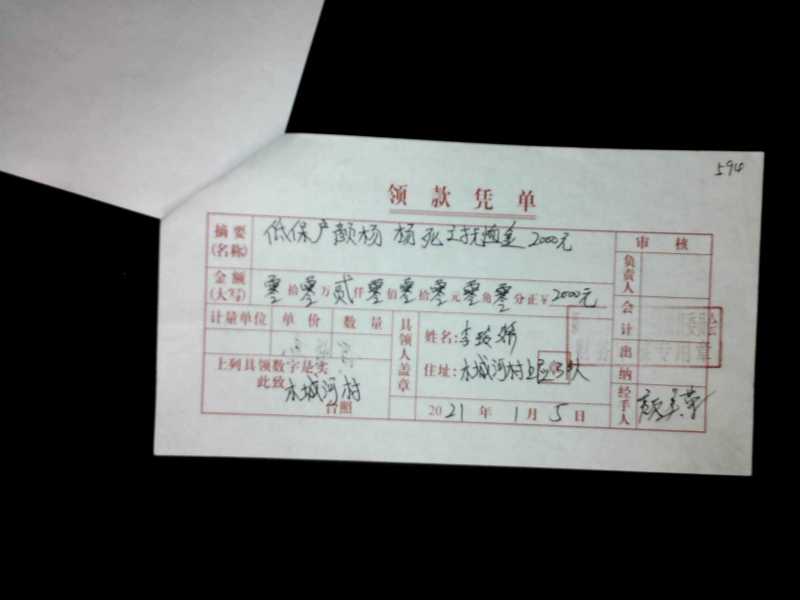 594
领款凭单
摘要(名称) 低保户颜杨 杨死亡抚恤金2000元
审核
负责人
金额(大写) 零拾零万贰仟零佰零拾零元零角零分正¥2000元
会计
计量单位 单价 数量
具领人盖章
姓名:李
出纳
专用章
上列具领数字是实
住址:木城河村
此致 木城河村
台照
2021年1月5日
经手人